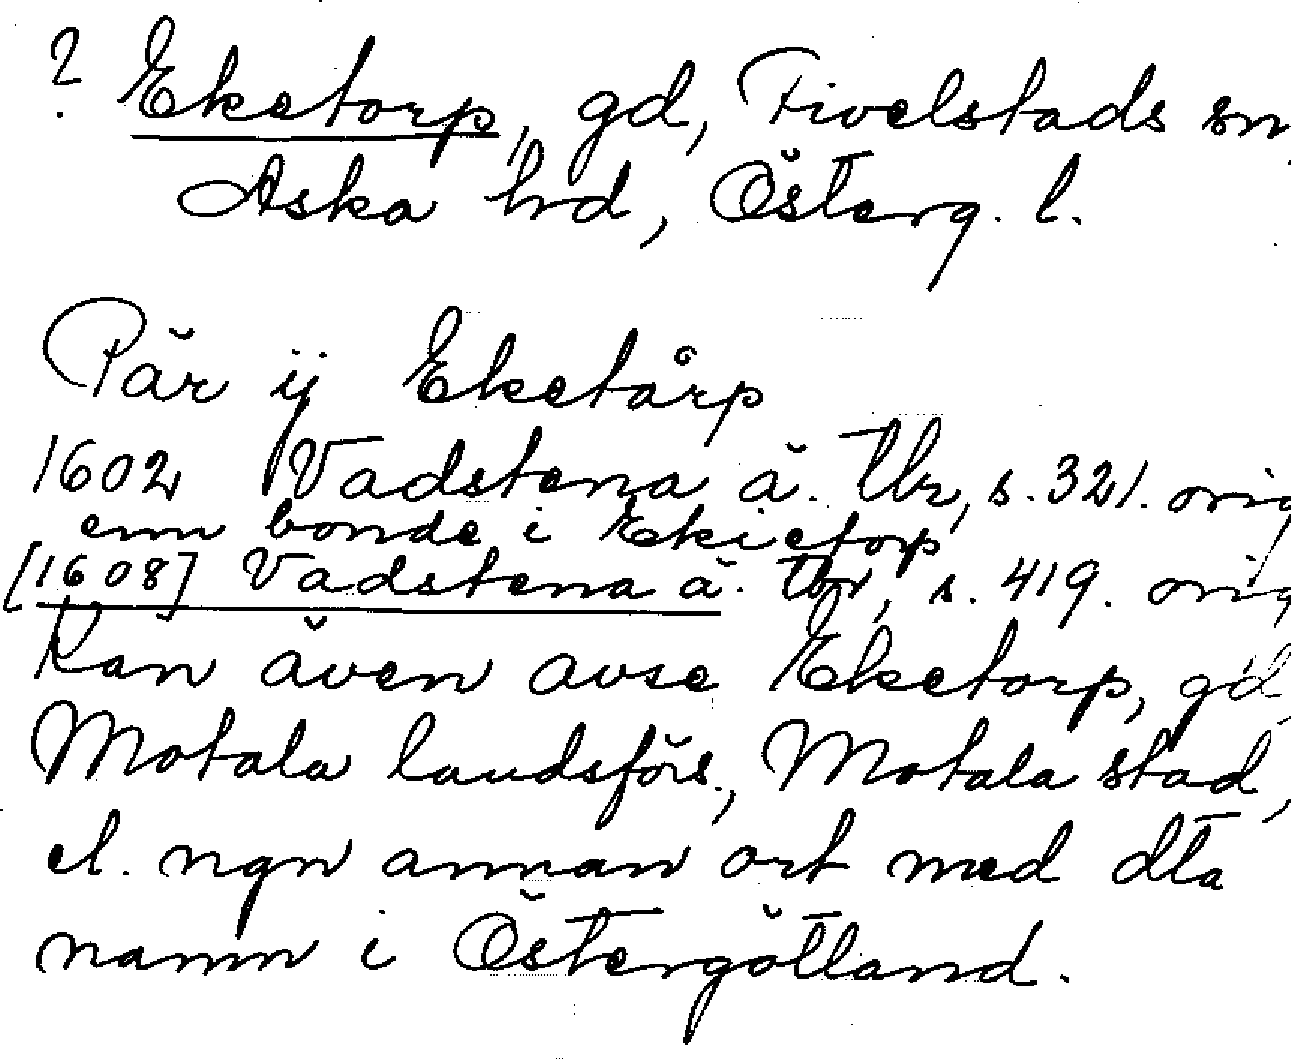 ? Eketorp, gd, Fivelstads sn,
Aska hd, Österg. l.
Pär ij Eketårp
1602 Vadstena ä. tbr, s. 321. orig
enn bonde i Ekietorp
[1608] Vadstena ä. tbr, s. 419. orig
Kan även avse Eketorp, gd,
Motala landsförs., Motala stad,
el. ngn annan ort med dta
namn i Östergötland.